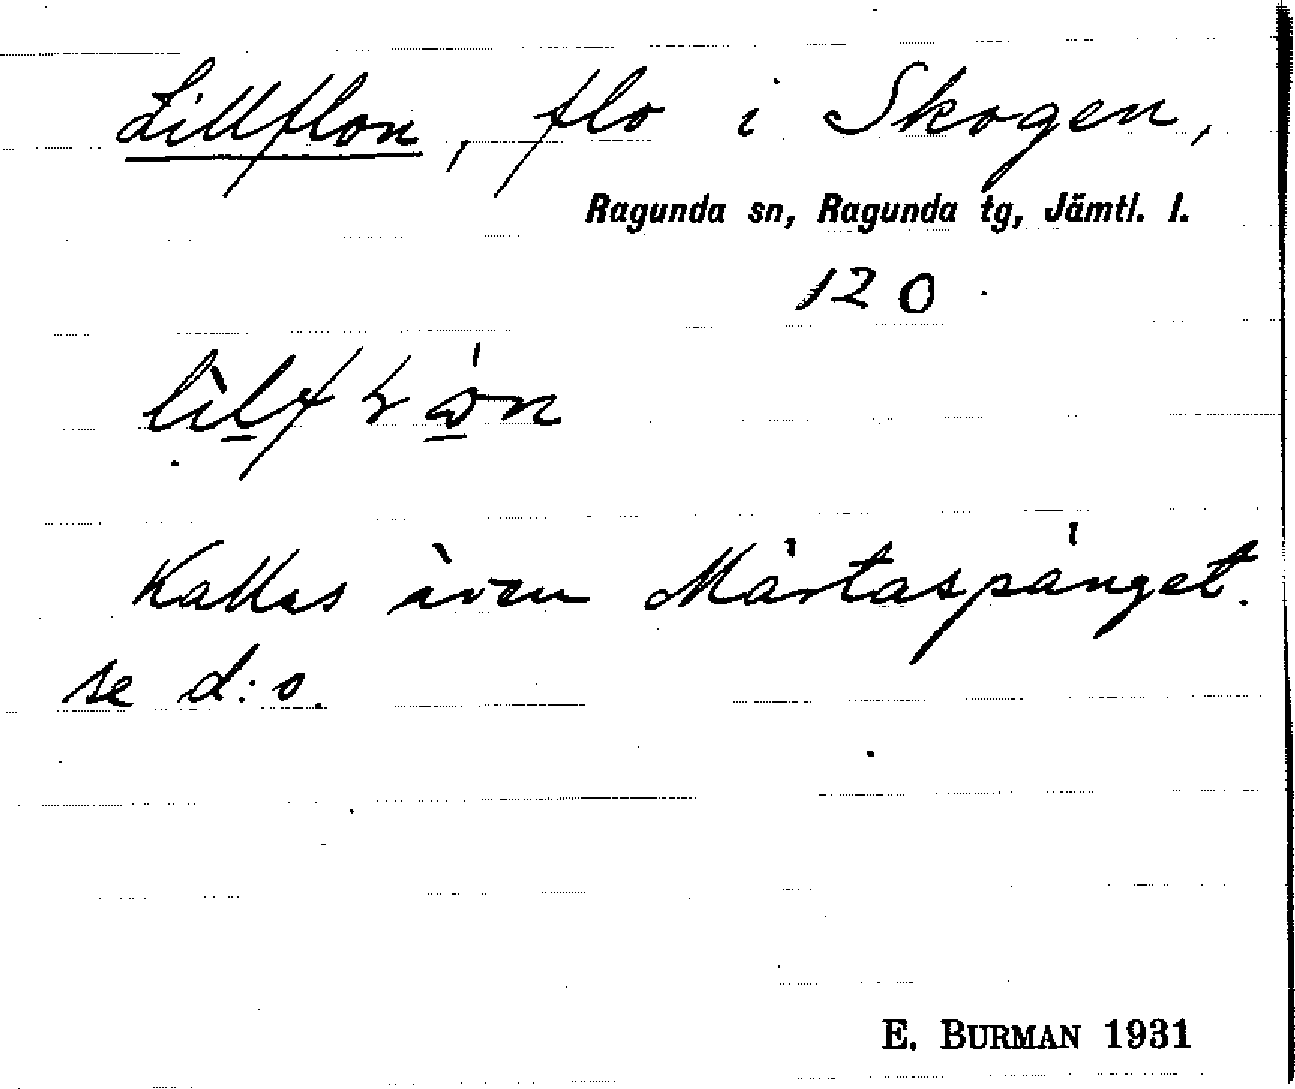 Lillflon, flo i Skogen,
Ragunda sn, Ragunda tg, Jämtl. l.
120
Kallas även Märtaspänget.
se d:o.
E. BURMAN 1931